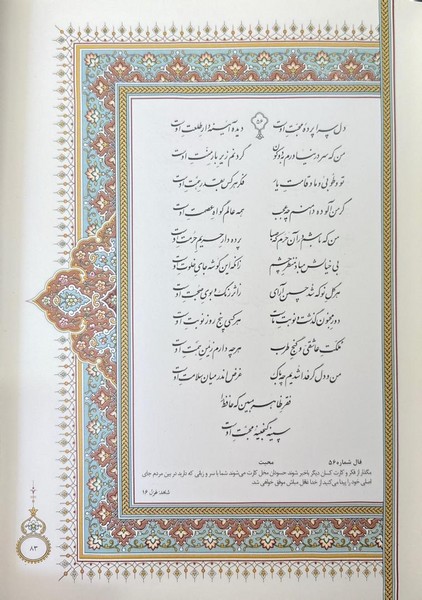 ۵۶
دل سراپرده محبت اوست دیده آئینه‌دار طلعت اوست
من که سر درنیاورم به دو کون گردنم زیر بار منت اوست
تو و طوبی و ما و قامت یار فکر هر کس بقدر همت اوست
گر من آلوده دامنم چه عجب همه عالم گواه عصمت اوست
من که باشم در آن حرم که صبا پرده‌دار حریم حرمت اوست
بی خیالش مباد منظر چشم زانکه این گوشه جای خلوت اوست
هر گل نو که شد چمن آرای ز اثر رنگ و بوی صحبت اوست
دور مجنون گذشت و نوبت ماست هر کسی پنج روز نوبت اوست
ملکت عاشقی و گنج طرب هر چه دارم ز یمن همت اوست
من و دل گر فدا شدیم چه باک غرض اندر میان سلامت اوست
فقر ظاهر مبین که حافظ را
سینه گنجینه محبت اوست
فال شماره ۵۶ محبت
مگذار از فکر و کارت کسان دیگر باخبر شوند. حسودان مخل کارت می‌شوند. شما با سر و زبانی که دارید در بین مردم جای
اصلی خود را پیدا می‌کنید. از خدا غافل مباش موفق خواهی شد.
شاهد: غزل ۱۶
۸۳